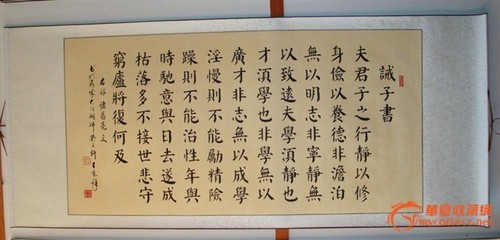 誡子書
夫君子之行靜以修
身儉以養德非澹泊
無以明志非寧靜無
以致遠夫學須靜也
才須學也非學無以
廣才非志無以成學
淫慢則不能勵精險
躁則不能治性年與
時馳意與日去遂成
枯落多不接世悲守
窮廬將復何及
右錄諸葛亮文
華夏收藏網
mycollect.net